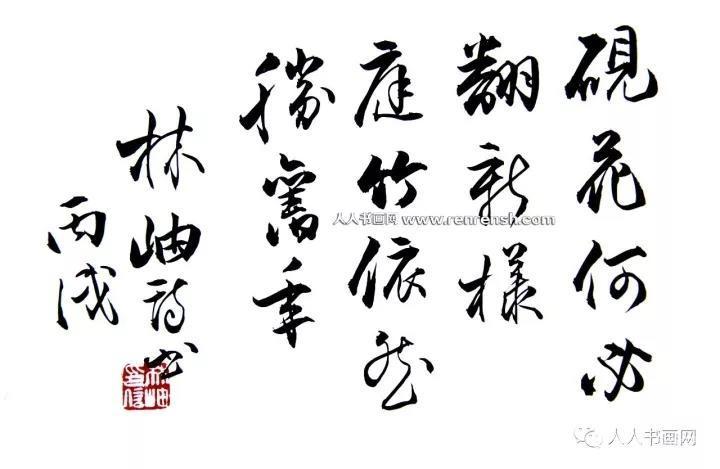 硯花何必
翻新樣
庭竹依然
勝舊年
林岫詩書
丙戌
人人书画网 www.renrensh.com
人人书画网